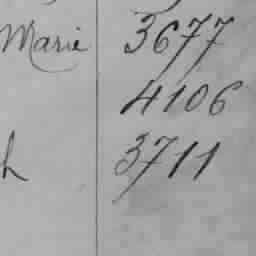 Marie 3677
4106
h 3711